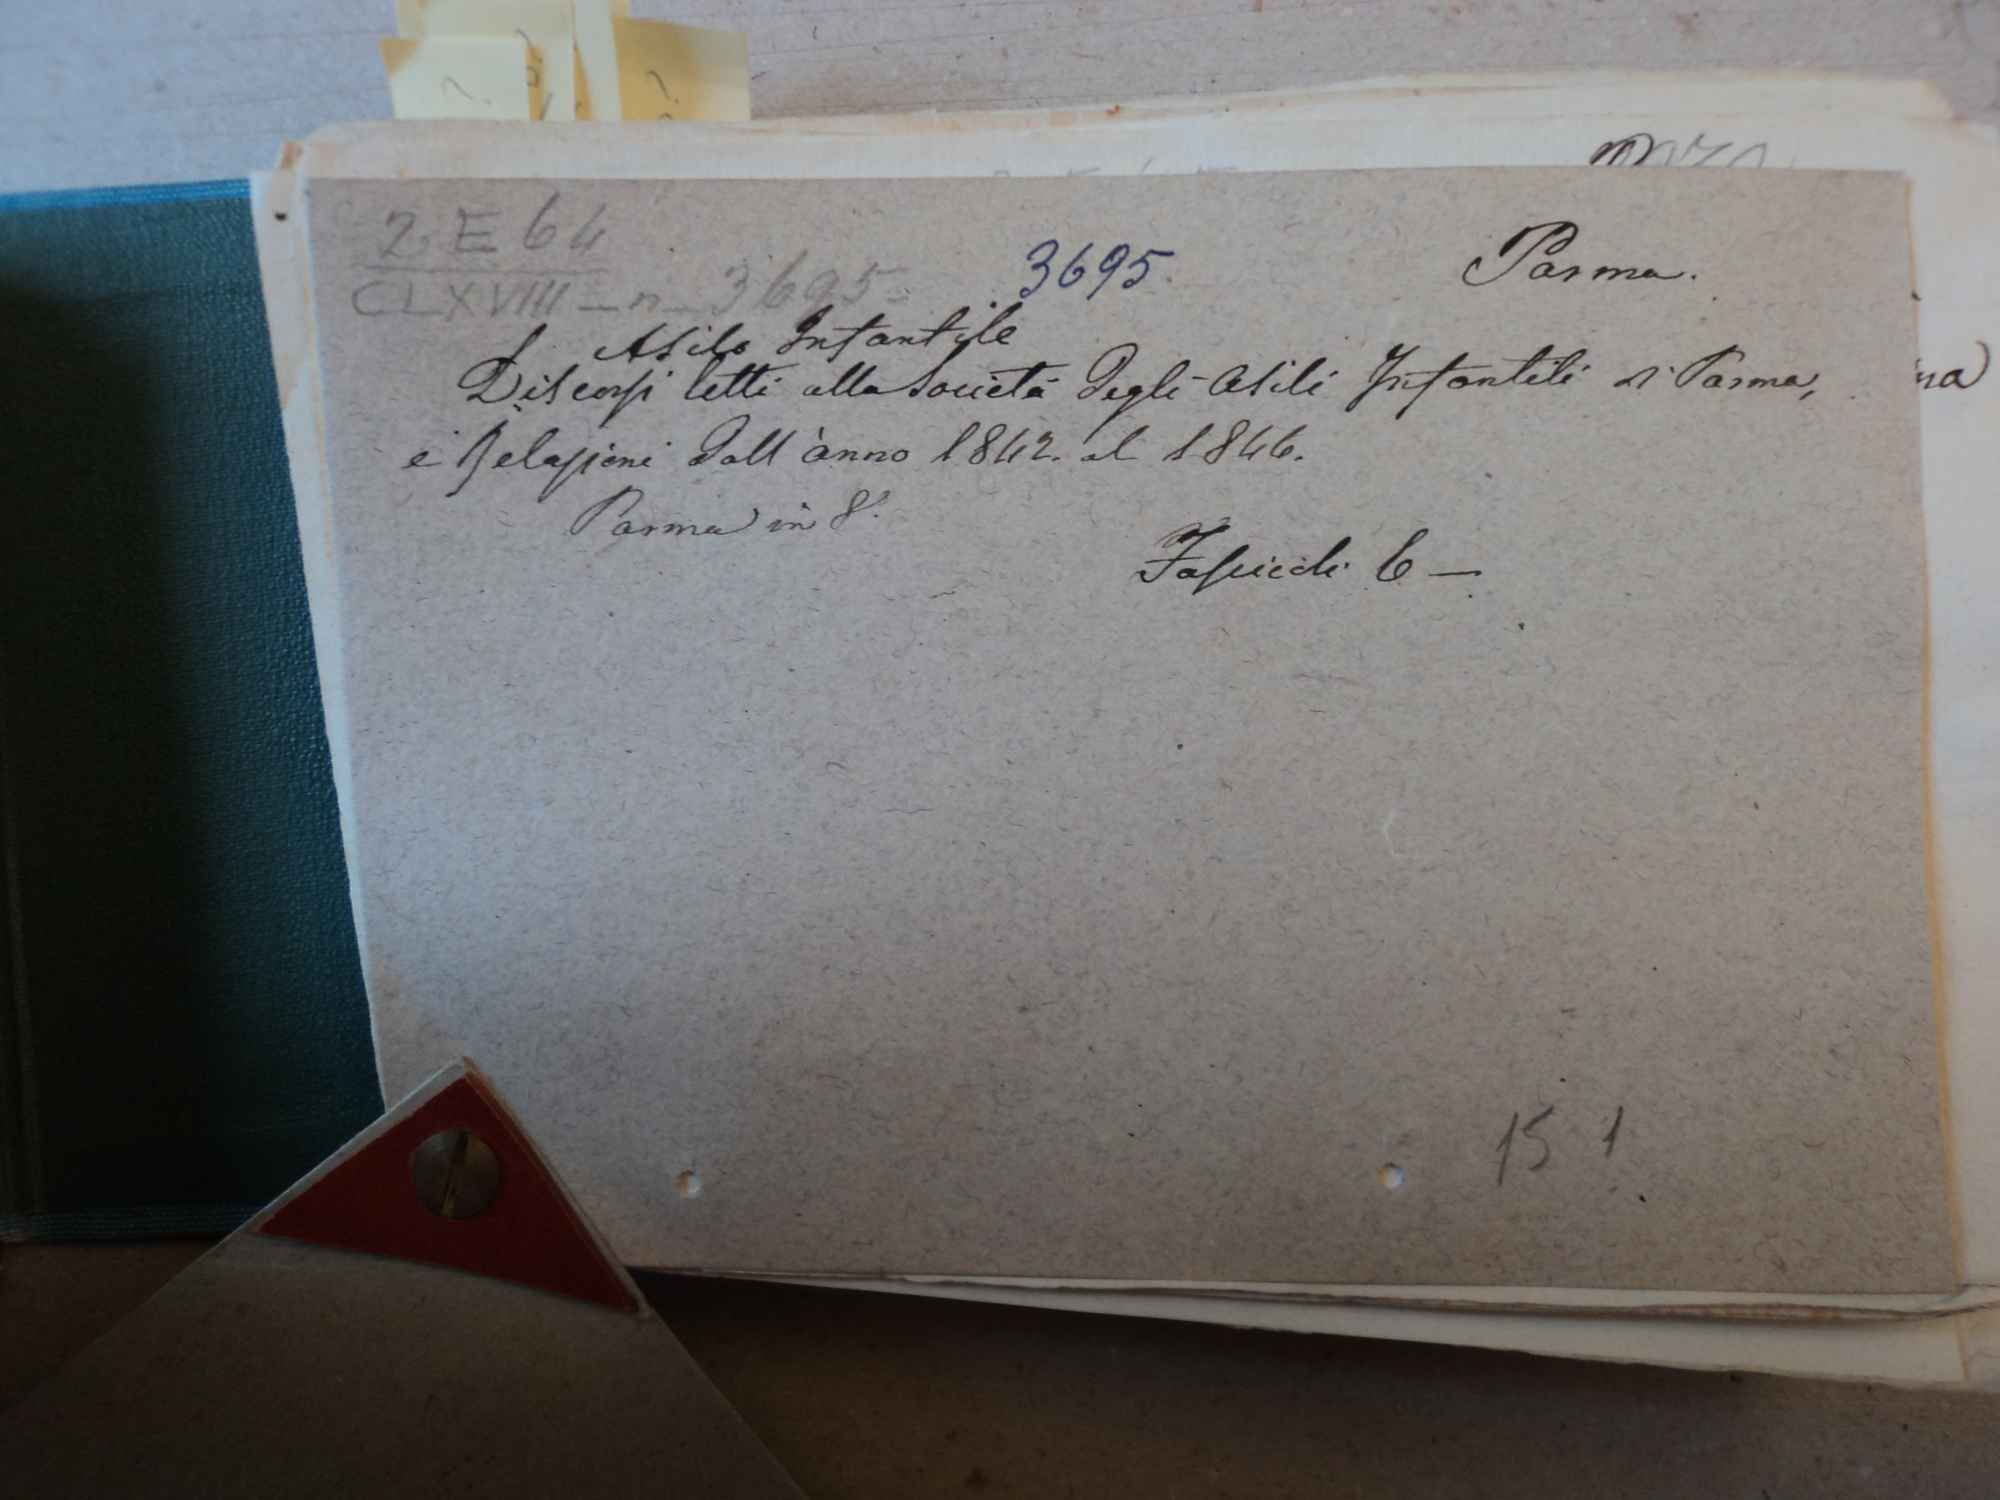 2 E 64
CLXVIII - n - 3695 -
3695.
Parma.
Asilo Infantile
Discorsi letti alla Società degli Asili Infantili di Parma,
e Relazioni dall'anno 1842. al 1846.
Parma in 8.°
Fascicoli 6 —
15 1
?
?